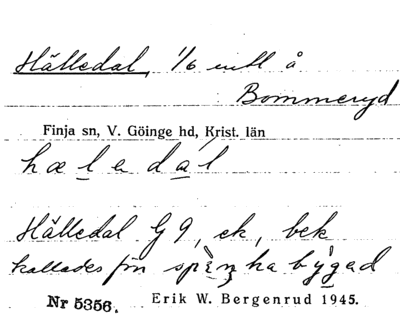 Hälledal, 1/6 mtl å
Bommeryd
Finja sn, V. Göinge hd, Krist. län
hæledal
Hälledal G 9, ek, bek
kallades för
Nr 5356. Erik W. Bergenrud 1945.